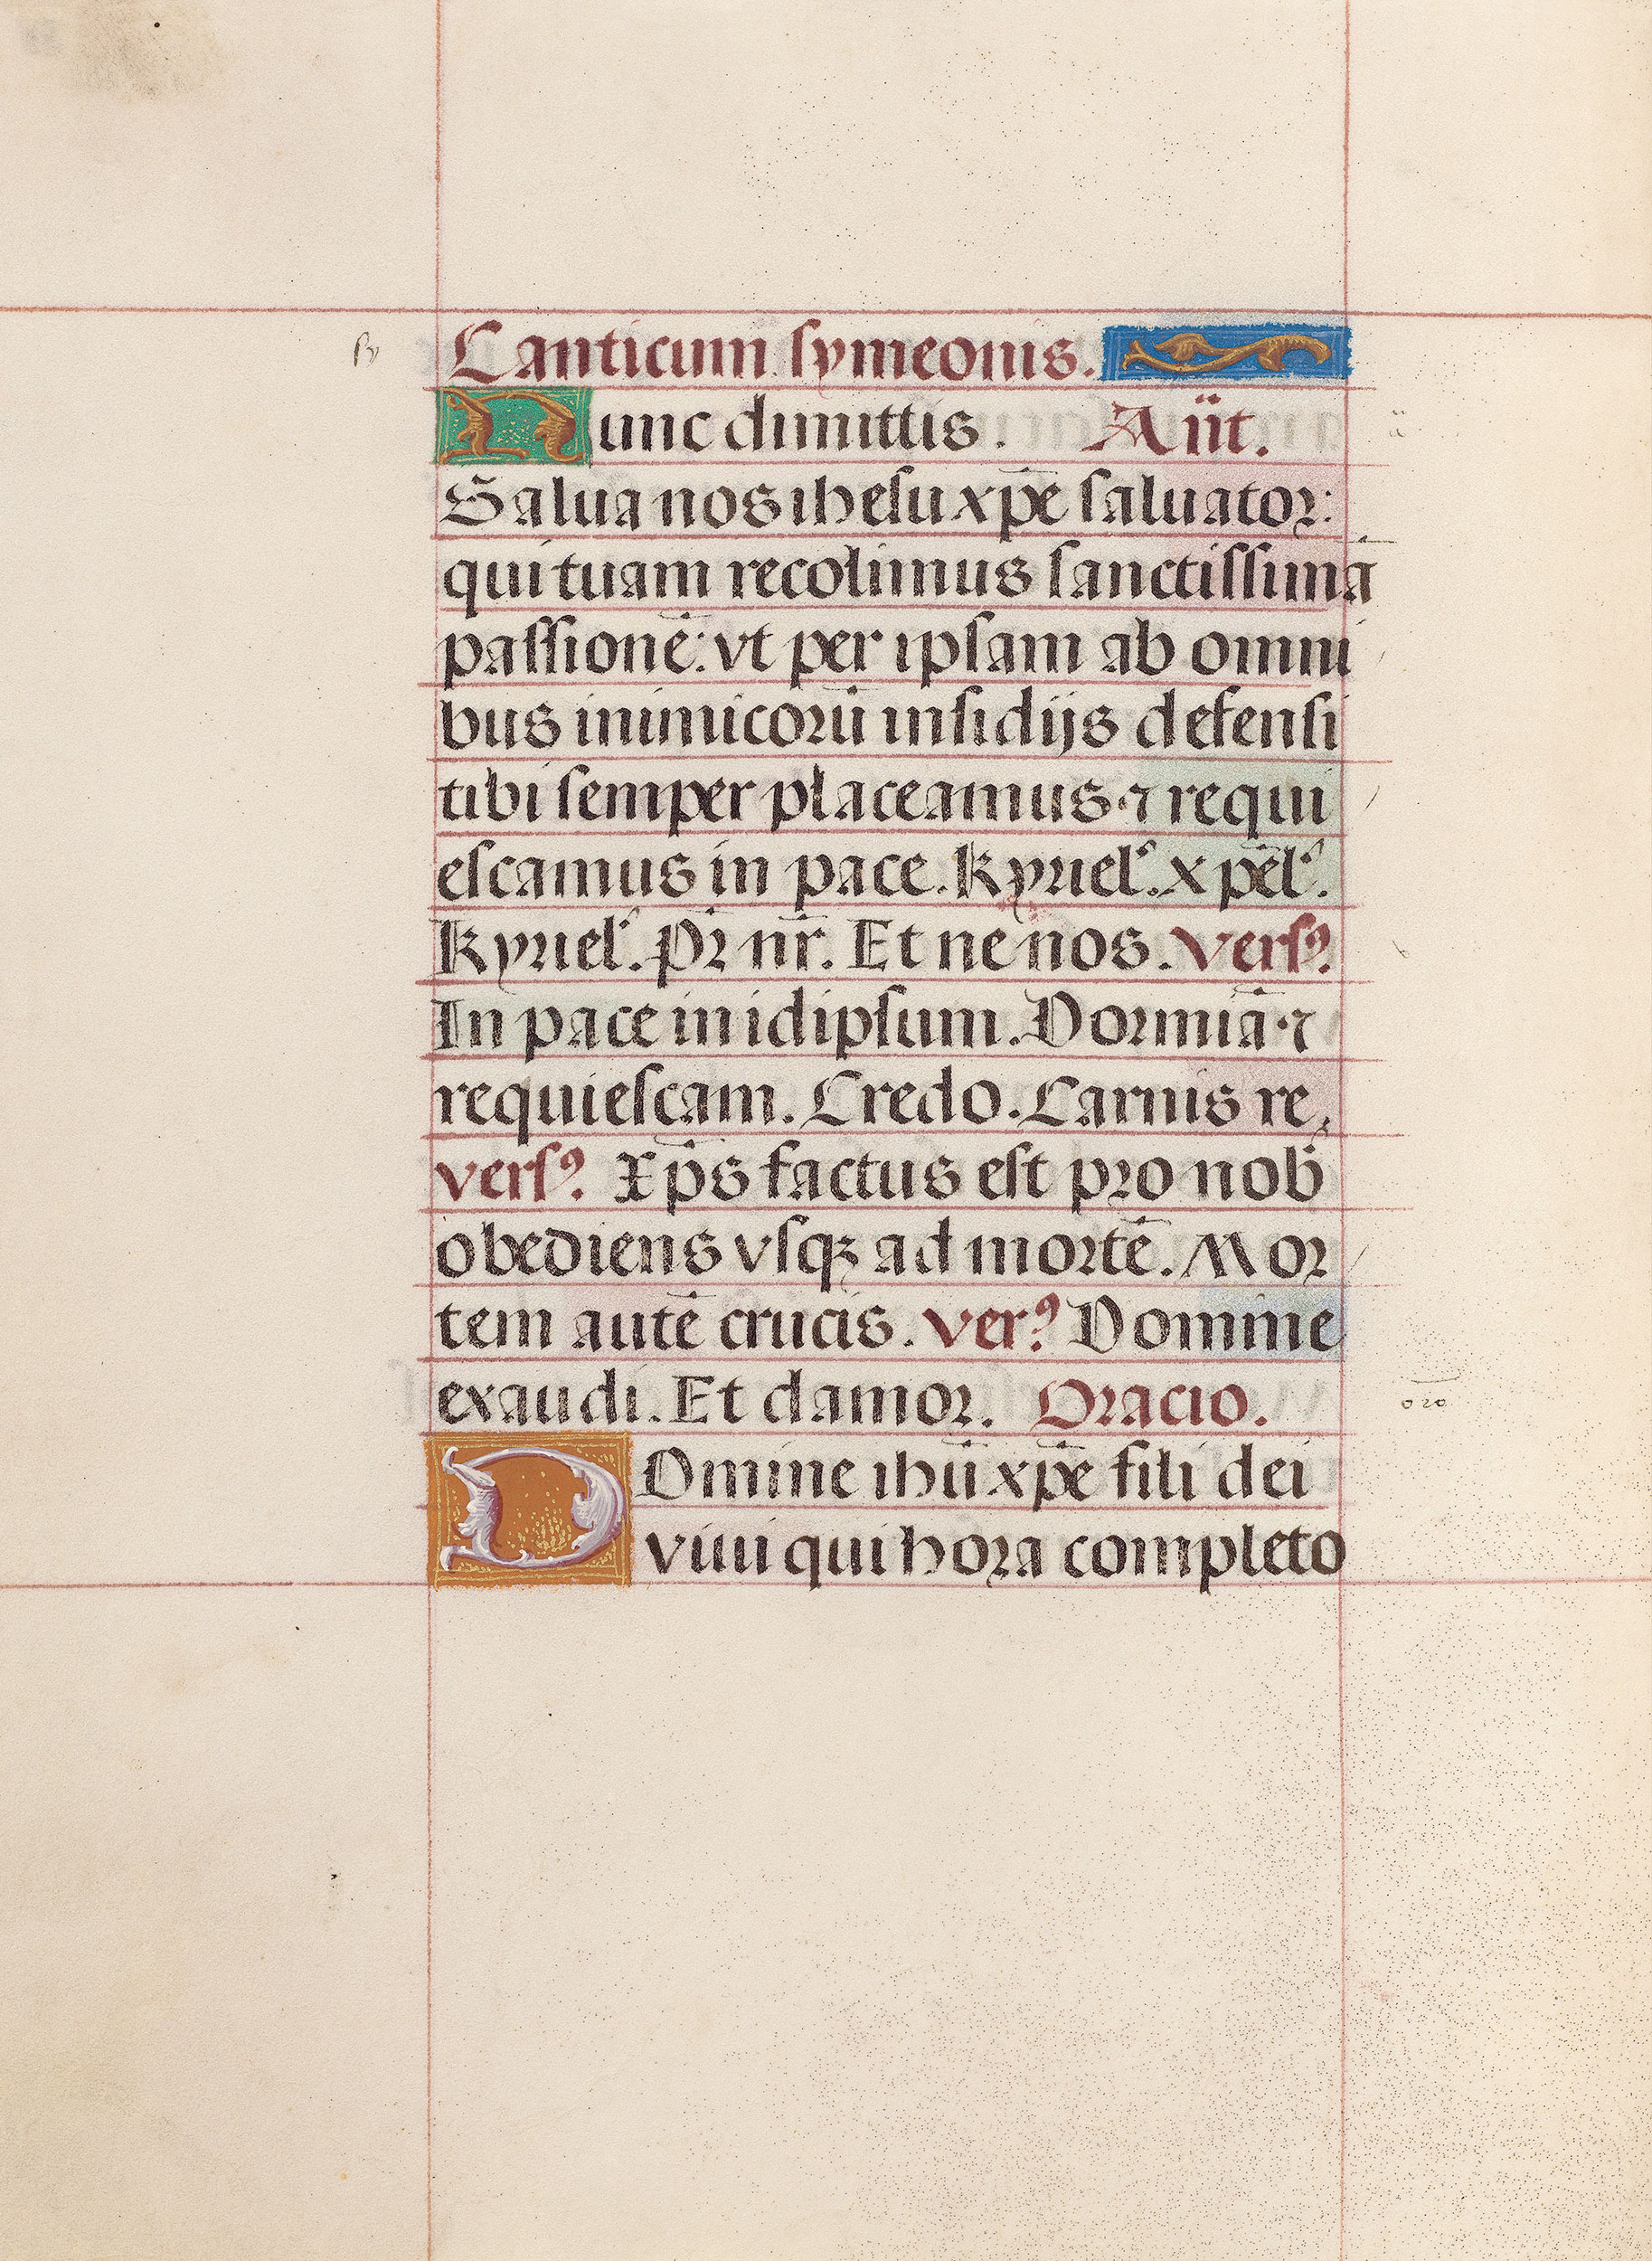 Canticum symeonis.
Nunc dimittis. Añt.
Salua nos ihesu xp̄e saluator:
qui tuam recolimus sanctissimā
passionē: vt per ipsam ab omni
bus inimicorū insidijs defensi
tibi semper placeamus ⁊ requi
escamus in pace. Kyriel̓. xp̄el̓.
Kyriel̓. Pr̄ nr̄. Et ne nos. versꝰ.
In pace in idipsum. Dormiā ⁊
requiescam. Credo. Carnis re.
versꝰ. Xp̄s factus est pro nob̄
obediens vsqꝫ ad mortē. Mor
tem autē crucis. verꝰ. Domine
exaudi. Et clamor. Oracio.
DOmine ihū xp̄e fili dei
viui qui hora completo
oro